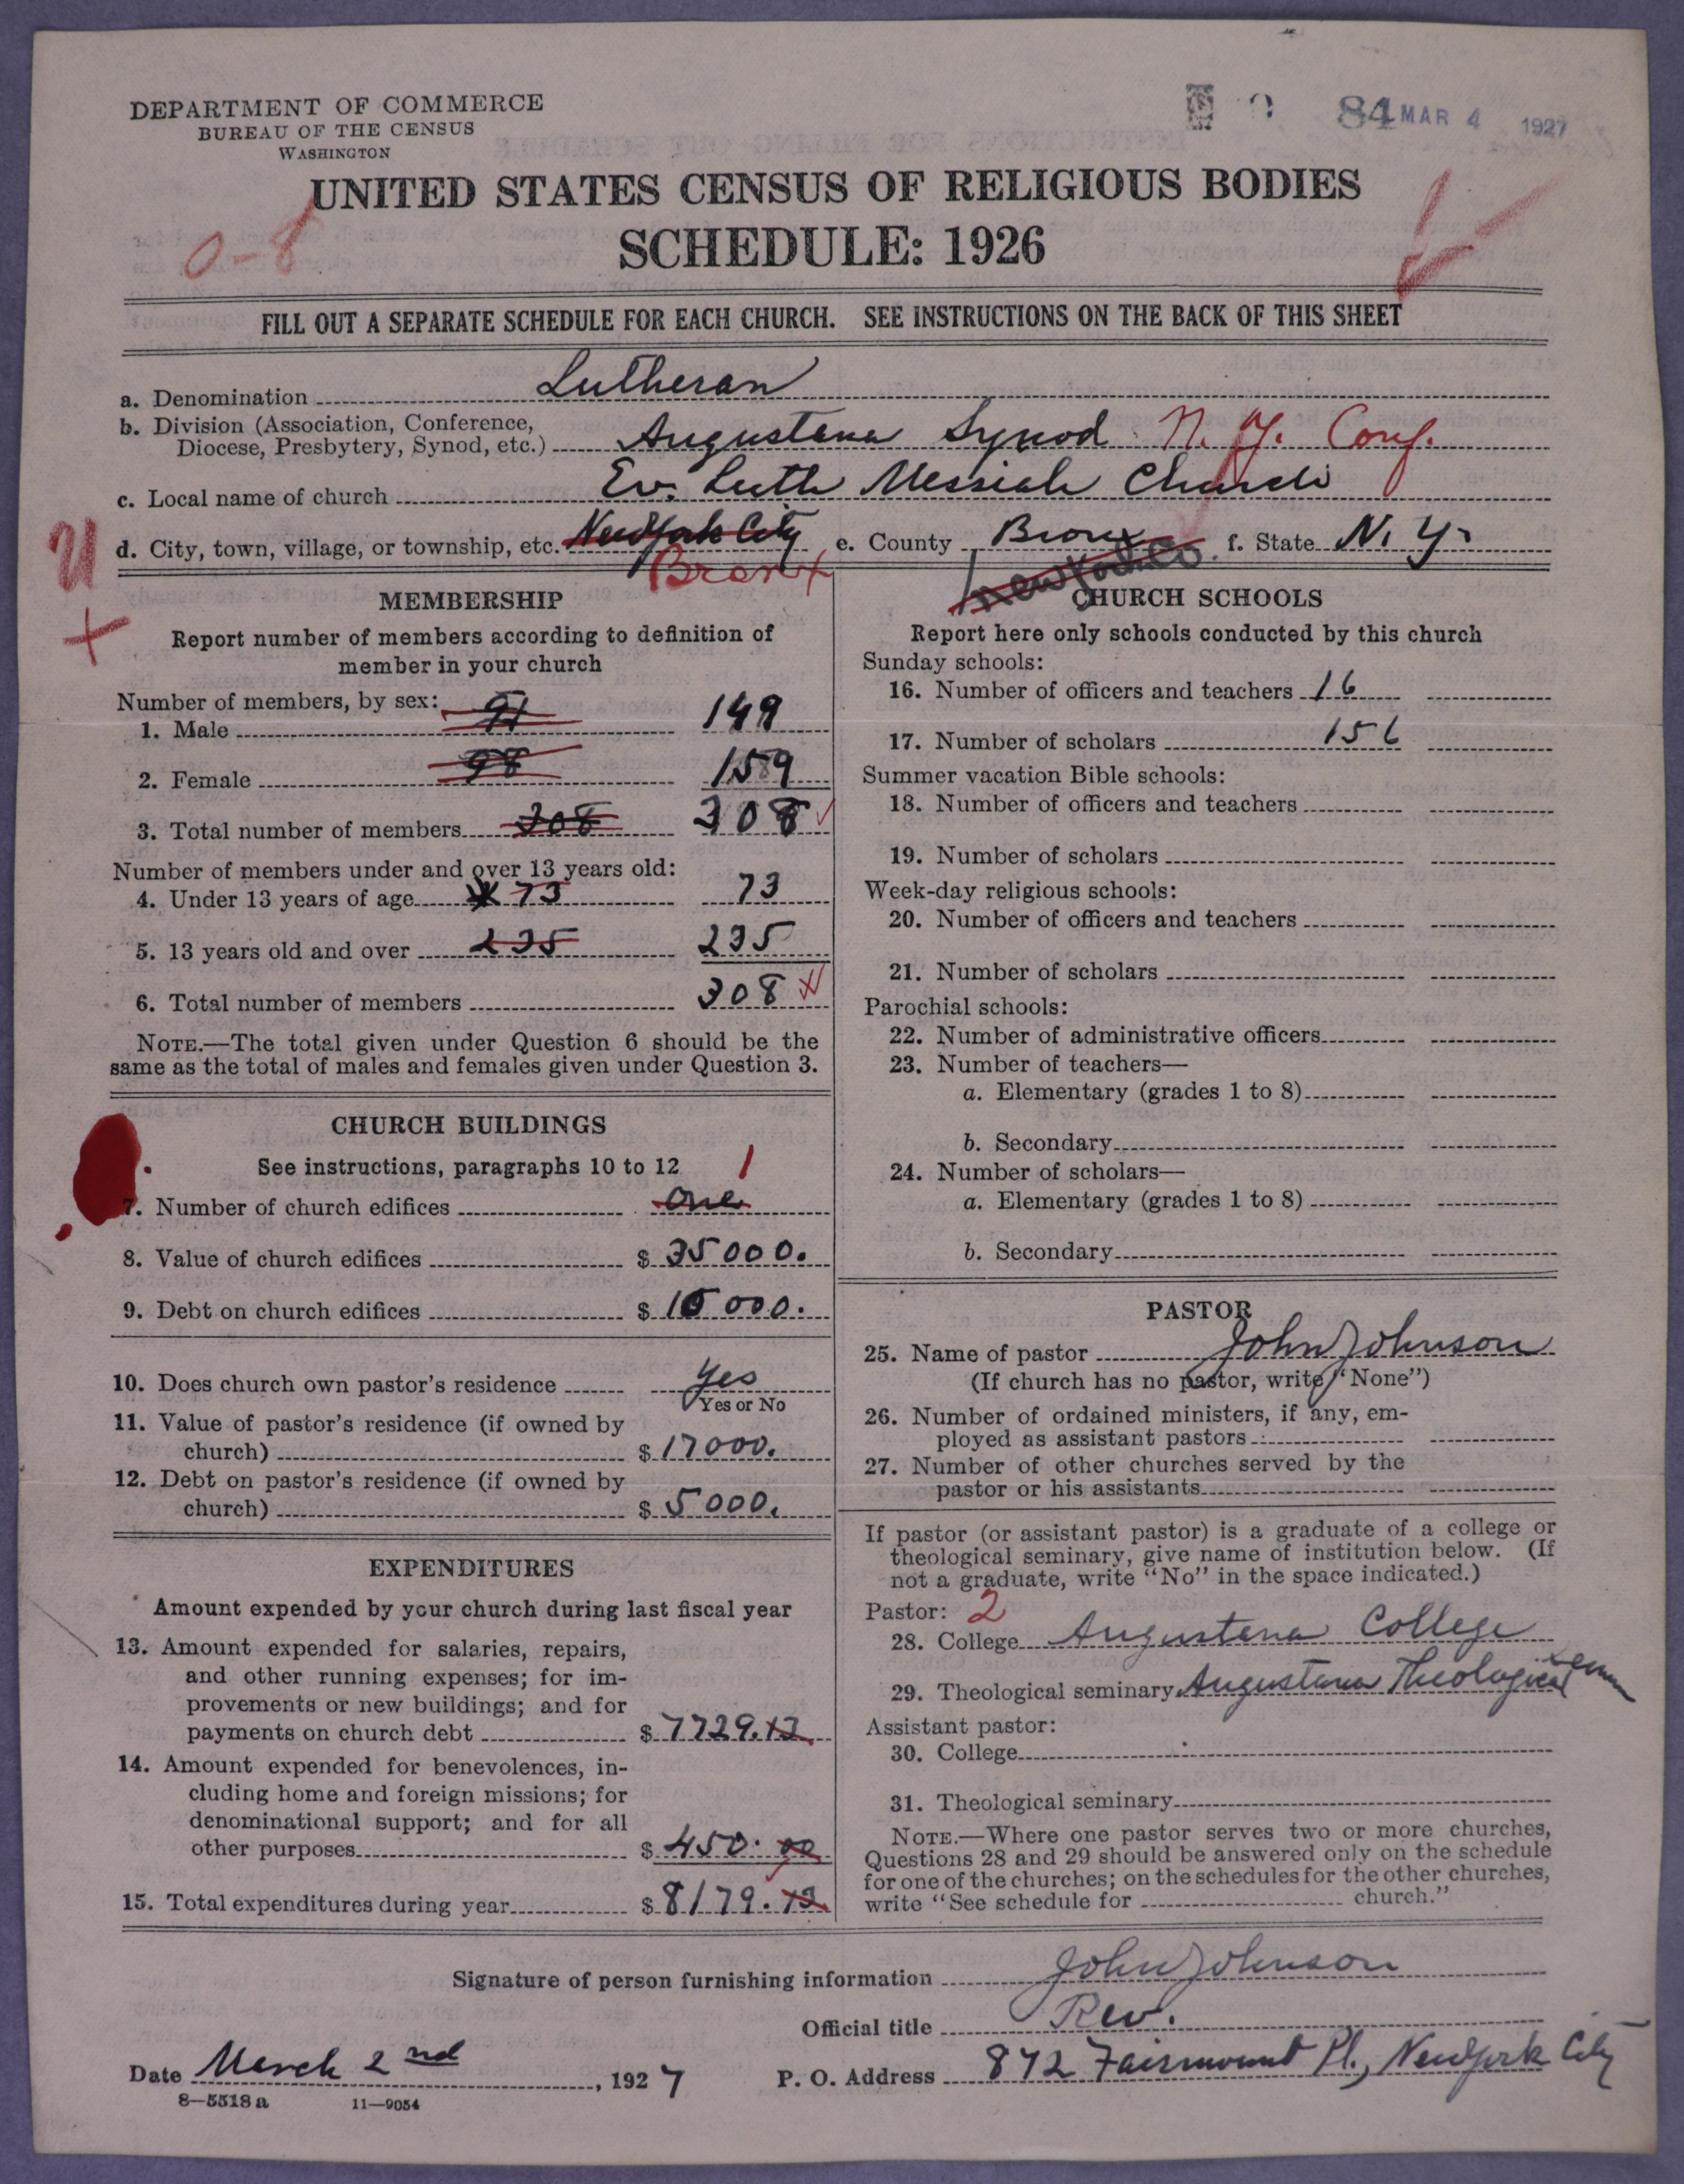 DEPARTMENT OF COMMERCE
BUREAU OF THE CENSUS
WASHINGTON
84 MAR 4 1927
UNITED STATES CENSUS OF RELIGIOUS BODIES
SCHEDULE: 1926
0-8
FILL OUT A SEPARATE SCHEDULE FOR EACH CHURCH. SEE INSTRUCTIONS ON THE BACK OF THIS SHEET
a. Denomination Lutheran
b. Division (Association, Conference,
Diocese, Presbytery, Synod, etc.) Augustana Synod N. Y. Conf.
c. Local name of church Ev. Luth Messiah Church
d. City, town, village, or township, etc. New York City e. County Bronx f. State N. Y.
Bronx New York Co.
MEMBERSHIP
Report number of members according to definition of
member in your church
Number of members, by sex:
1. Male 91 149
2. Female 98 159
3. Total number of members 308 308
Number of members under and over 13 years old:
4. Under 13 years of age 73 73
5. 13 years old and over 235 235
6. Total number of members 308
NOTE.—The total given under Question 6 should be the
same as the total of males and females given under Question 3.
CHURCH BUILDINGS
See instructions, paragraphs 10 to 12 1
7. Number of church edifices one
8. Value of church edifices $ 35000.
9. Debt on church edifices $ 10000.
10. Does church own pastor's residence Yes
Yes or No
11. Value of pastor's residence (if owned by
church) $ 17000.
12. Debt on pastor's residence (if owned by
church) $ 5000.
EXPENDITURES
Amount expended by your church during last fiscal year
13. Amount expended for salaries, repairs,
and other running expenses; for im-
provements or new buildings; and for
payments on church debt $ 7729.13
14. Amount expended for benevolences, in-
cluding home and foreign missions; for
denominational support; and for all
other purposes $ 450.00
15. Total expenditures during year $ 8179.13
CHURCH SCHOOLS
Report here only schools conducted by this church
Sunday schools:
16. Number of officers and teachers 16
17. Number of scholars 156
Summer vacation Bible schools:
18. Number of officers and teachers
19. Number of scholars
Week-day religious schools:
20. Number of officers and teachers
21. Number of scholars
Parochial schools:
22. Number of administrative officers
23. Number of teachers—
a. Elementary (grades 1 to 8)
b. Secondary
24. Number of scholars—
a. Elementary (grades 1 to 8)
b. Secondary
PASTOR
25. Name of pastor John Johnson
(If church has no pastor, write "None")
26. Number of ordained ministers, if any, em-
ployed as assistant pastors
27. Number of other churches served by the
pastor or his assistants
If pastor (or assistant pastor) is a graduate of a college or
theological seminary, give name of institution below. (If
not a graduate, write "No" in the space indicated.)
Pastor: 2
28. College Augustana College
29. Theological seminary Augustana Theological Sem
Assistant pastor:
30. College
31. Theological seminary
NOTE.—Where one pastor serves two or more churches,
Questions 28 and 29 should be answered only on the schedule
for one of the churches; on the schedules for the other churches,
write "See schedule for church."
Signature of person furnishing information John Johnson
Official title Rev.
Date March 2nd, 1927 P. O. Address 872 Fairmount Pl., New York City
8—5518 a 11—9054